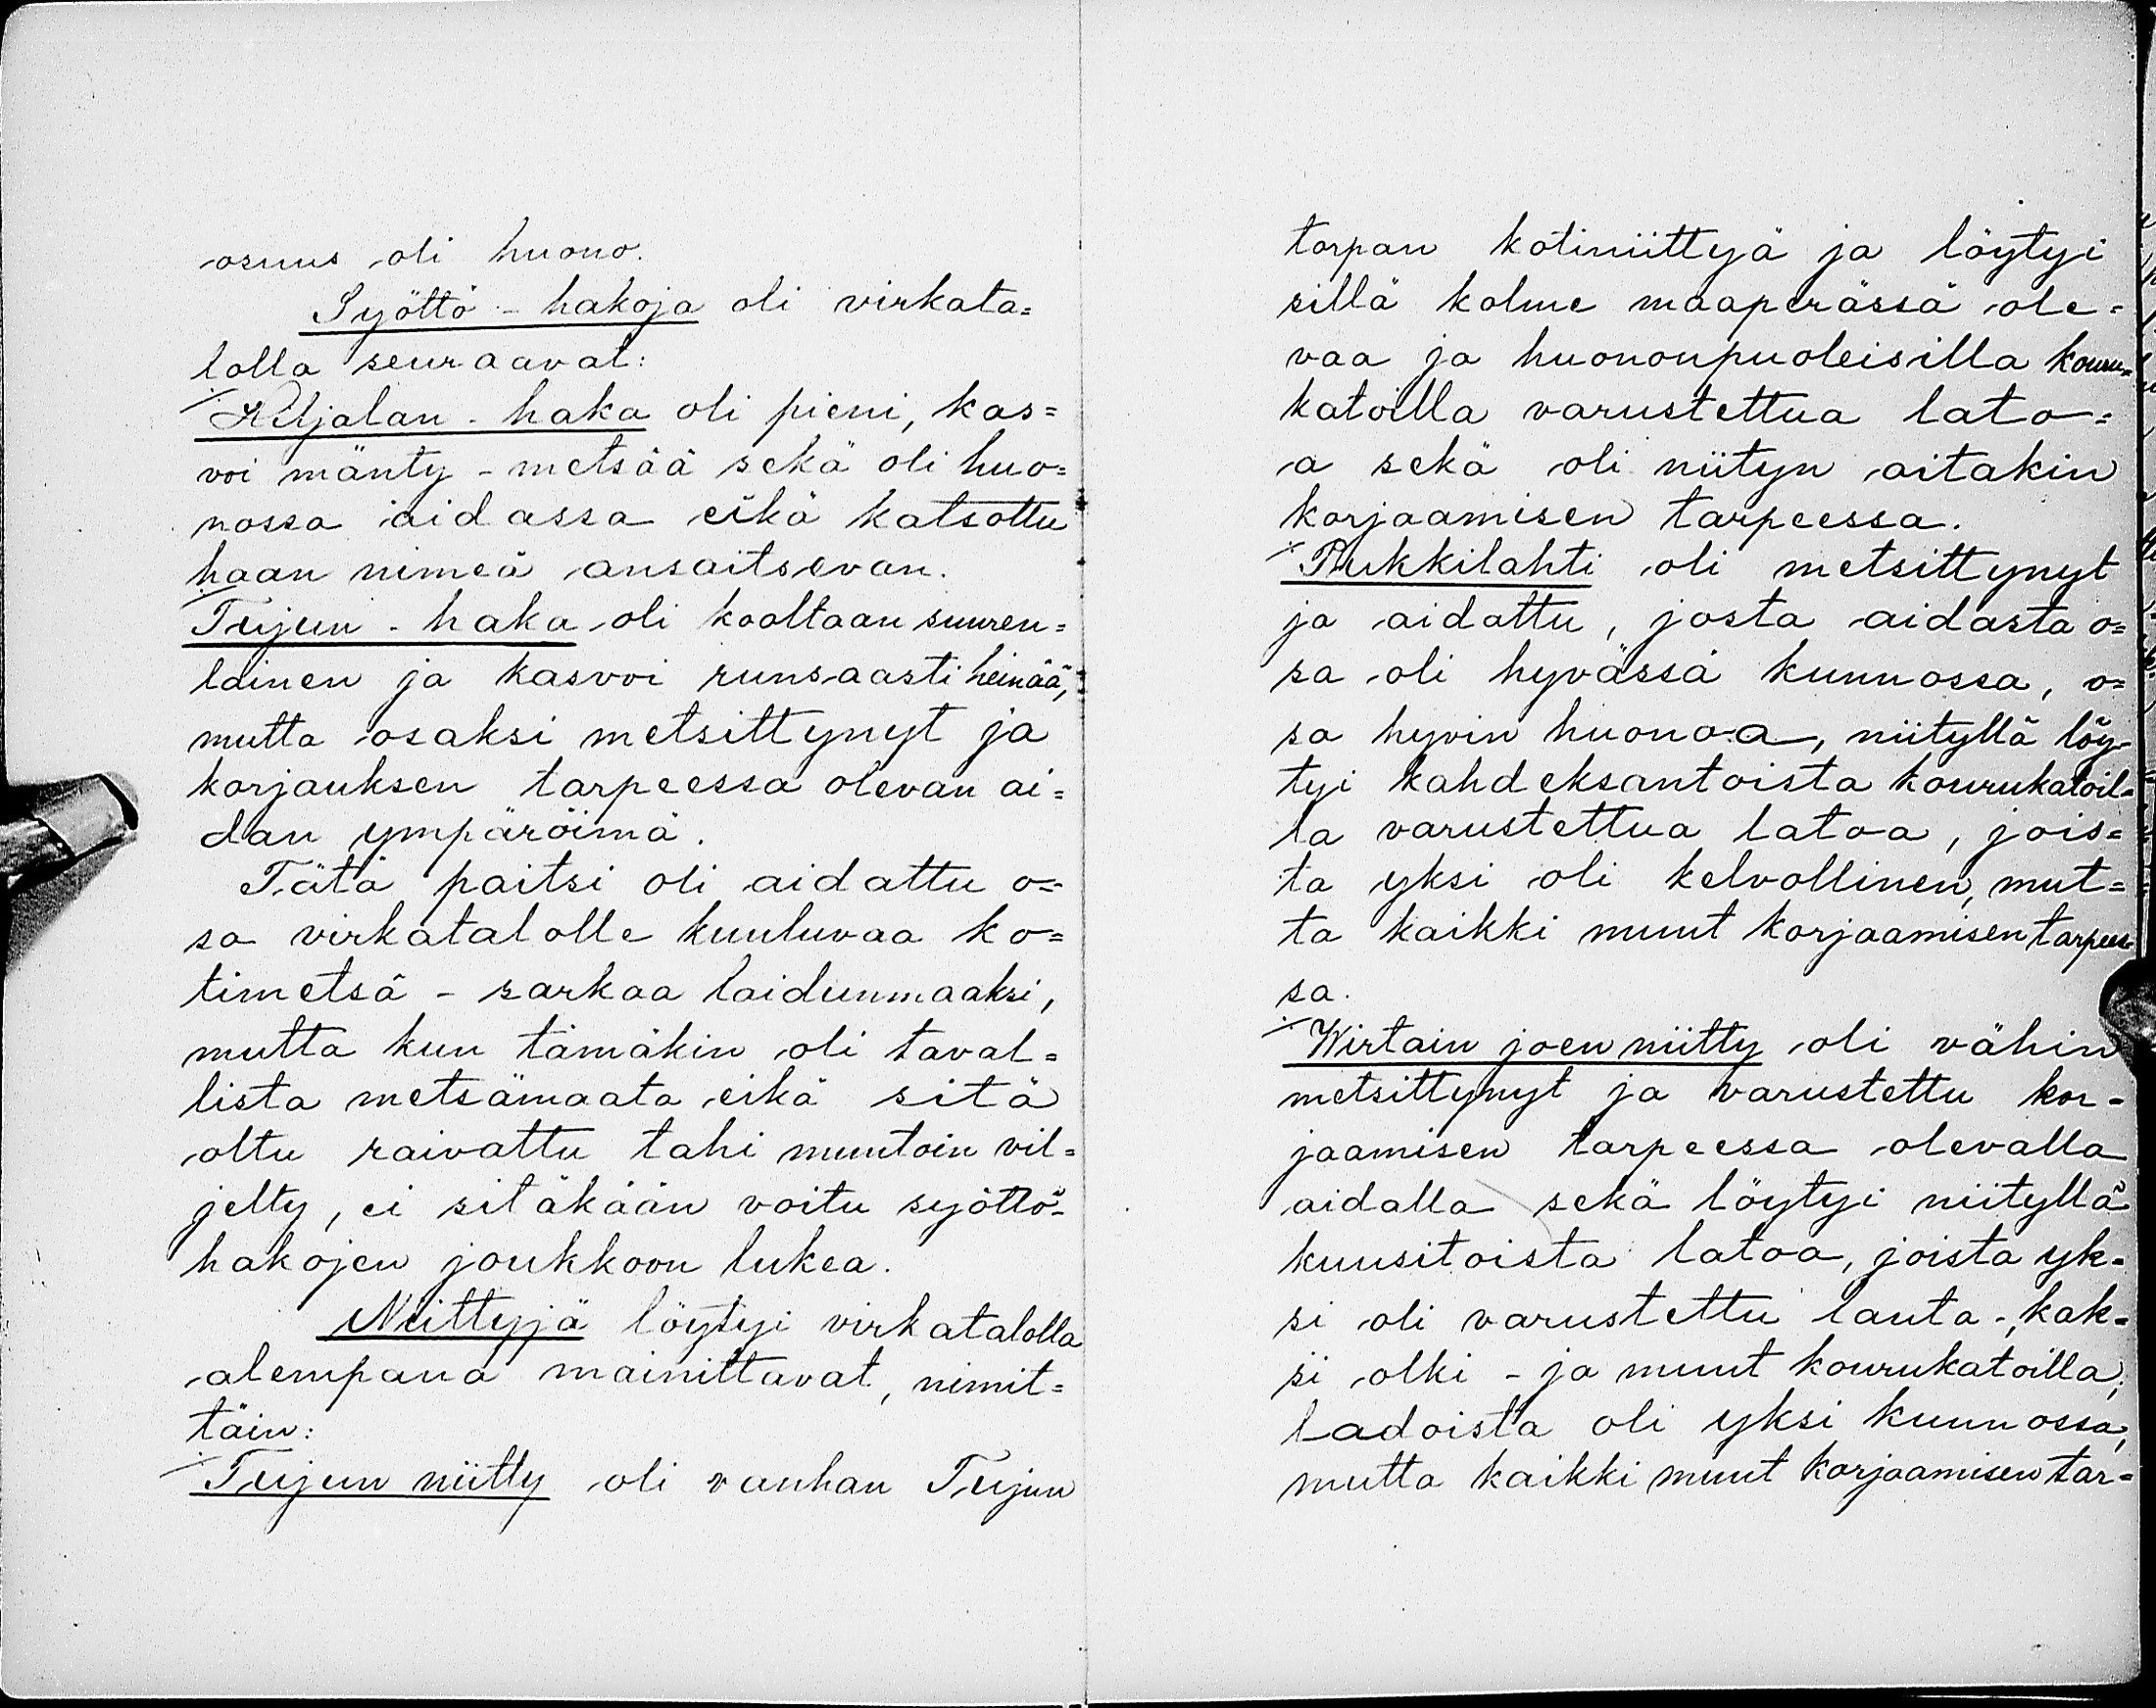 osuus oli huono.
Syöttö - hakoja oli virkata=
lolla seuraavat:
⁒ Kiljalan - haka oli pieni, kas=
voi mänty - metsää sekä oli huo=
nossa aidassa eikä katsottu
haan nimeä ansaitsevan.
⁒ Tujun - haka oli kooltaan suuren=
lainen ja kasvoi runsaasti heinää,
mutta osaksi metsittynyt ja
korjauksen tarpeessa olevan ai=
dan ympäröimä.
Tätä paitsi oli aidattu o=
sa virkatalolle kuuluvaa ko=
timetsä - sarkaa laidunmaaksi,
mutta kun tämäkin oli taval=
lista metsämaata eikä sitä
oltu raivattu tahi muutoin vil=
jelty, ei sitäkään voitu syöttö-
hakojen joukkoon lukea.
Niittyjä löytyi virkatalolla
alempana mainittavat, nimit=
täin:
⁒ Tujun niitty oli vanhan Tujun
torpan kotiniittyä ja löytyi
sillä kolme maaperässä ole=
vaa ja huononpuoleisilla kouru=
katoilla varustettua lato=
a sekä oli niityn aitakin
korjaamisen tarpeessa.
⁒ Pukkilahti oli metsittynyt
ja aidattu, josta aidasta o=
sa oli hyvässä kunnossa, o=
sa hyvin huonoa, niityllä löy-
tyi kahdeksantoista kourukatoil=
la varustettua latoa, jois=
ta yksi oli kelvollinen, mut=
ta kaikki muut korjaamisen tarpees-
sa.
⁒ Wirtain joen niitty oli vähin
metsittynyt ja varustettu kor-
jaamisen tarpeessa olevalla
aidalla sekä löytyi niityllä
kuusitoista latoa, joista yk-
si oli varustettu lauta-, kak-
si olki - ja muut kourukatoilla,
ladoista oli yksi kunnossa,
mutta kaikki muut korjaamisen tar-